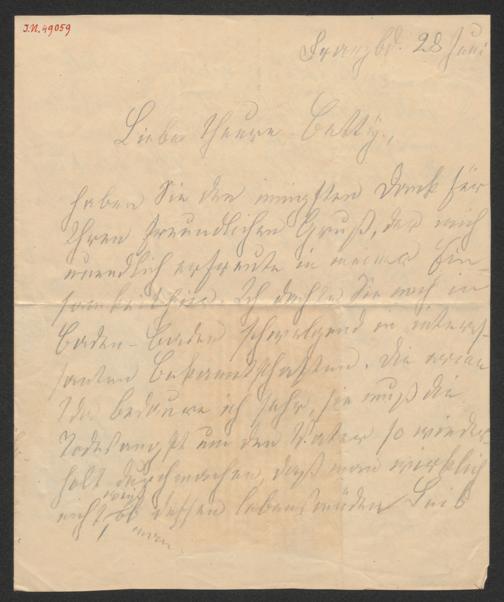 J.N. 49059
Franzbd. 28 Juni
Liebe theure Betty.,
haben Sie den innigsten Dank für
Ihren freundlichen Gruß, der mich
unendlich erfreute in meiner Ein-
samkeit hier. Ich dachte Sie noch in
Baden-Baden schwelgend in interes-
santen Bekanntschaften. Die arme
Ida bedaure ich sehr, sie muß die
Todesangst um den Vater so wieder
holt durchmachen, daß man wirklich
nicht ob dessen lebensmüden Leib
man